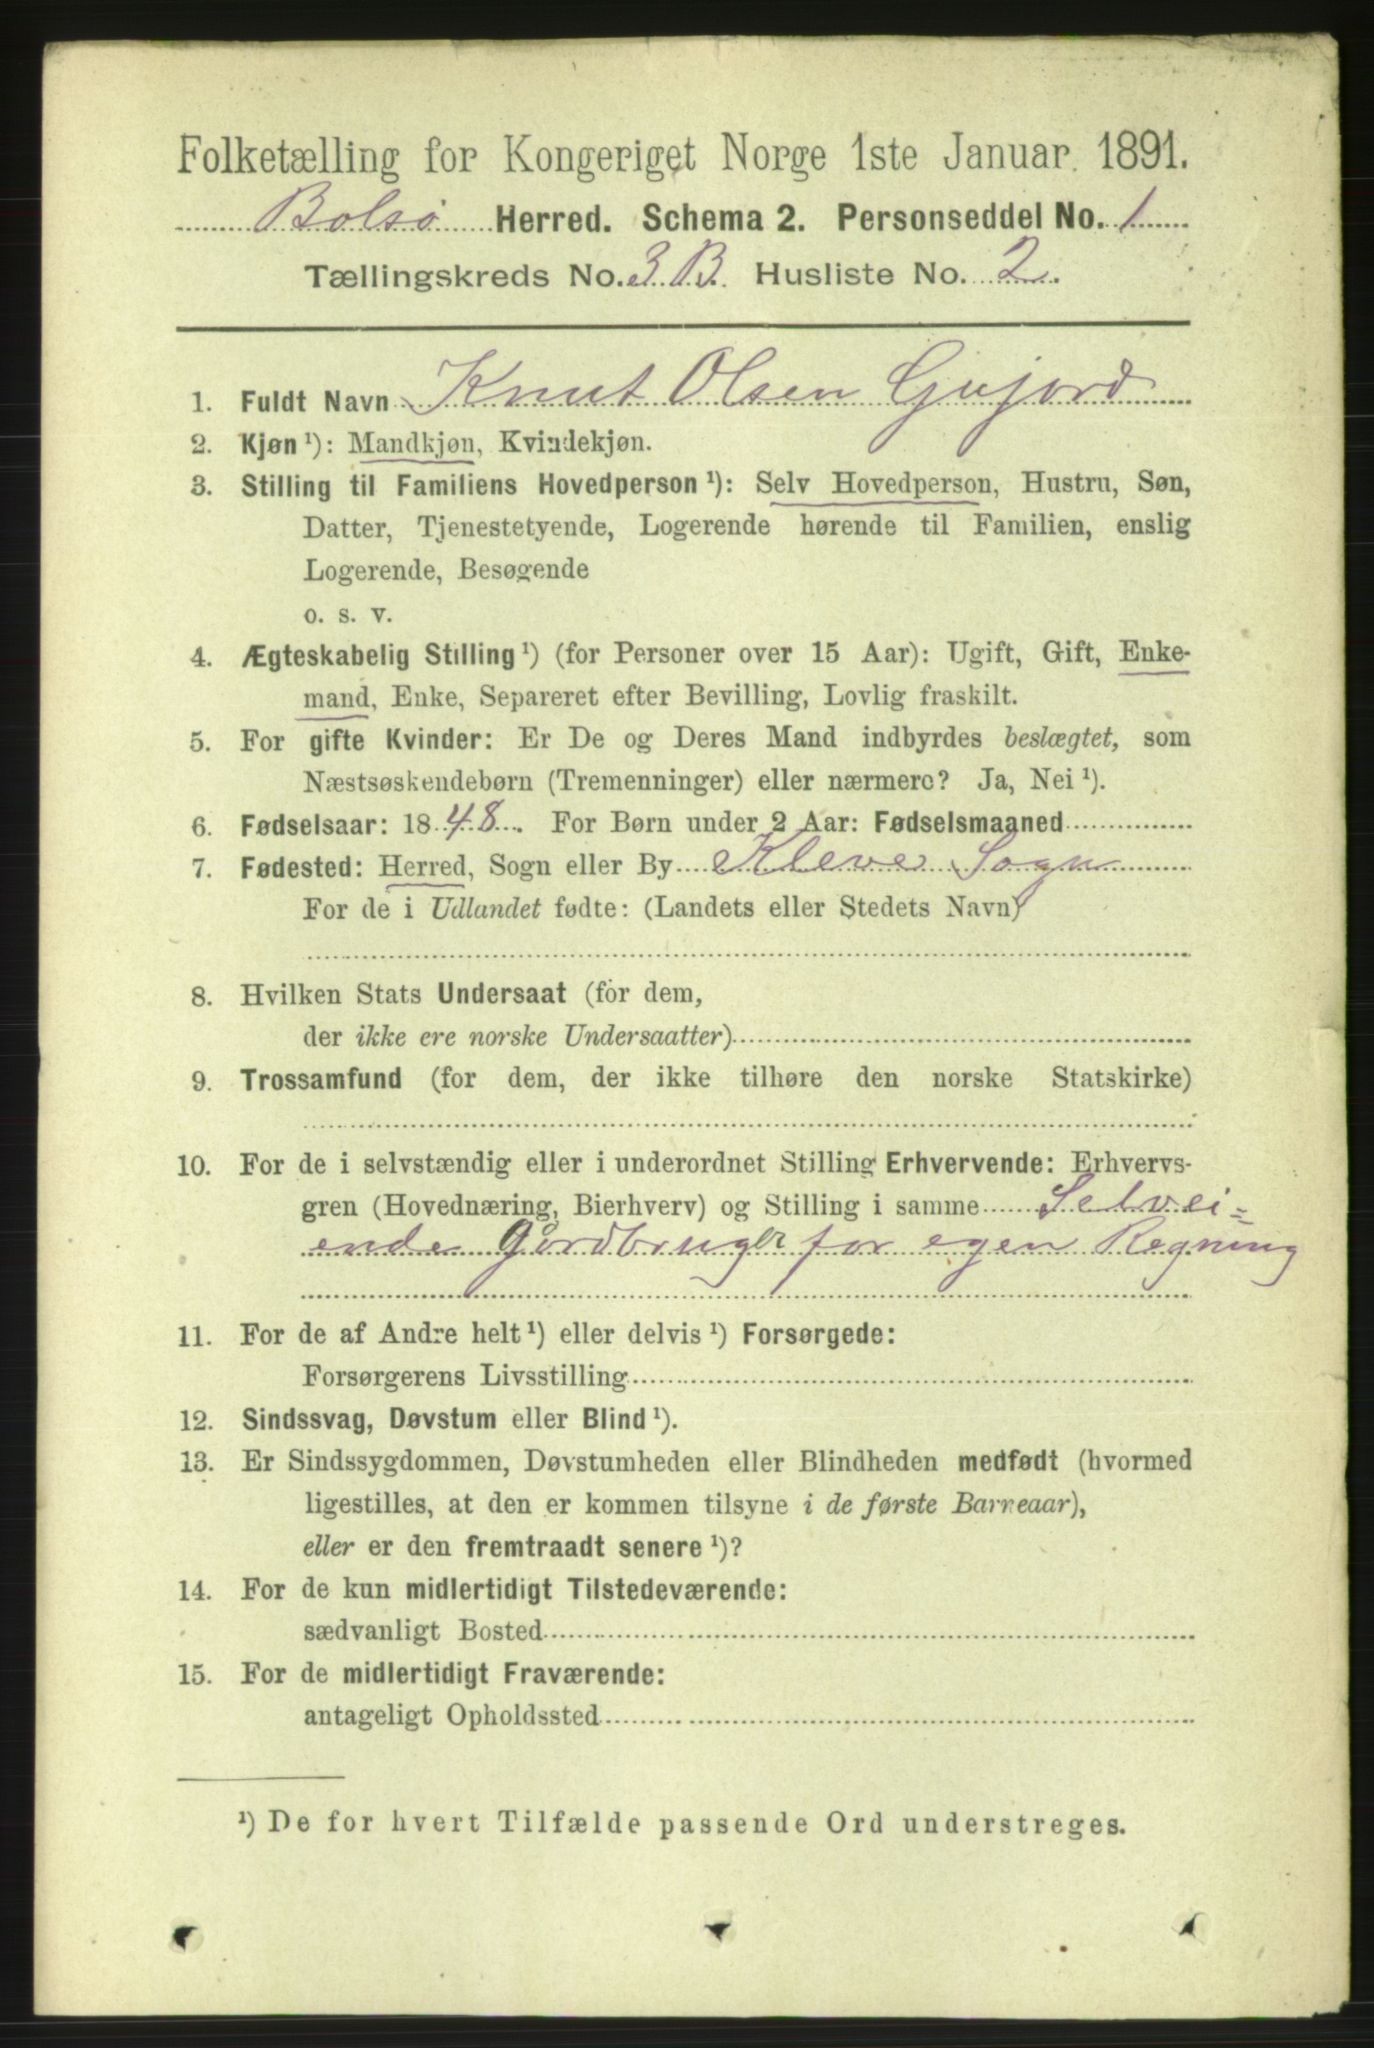 Folketælling for Kongeriget Norge 1ste Januar 1891.
Bolsø Herred. Schema 2. Personseddel No. 1
Tællingskreds No. 3 B. Husliste No. 2.
1. Fuldt Navn Knut Olsen Gujord
2. Kjøn ¹): Mandkjøn, Kvindekjøn.
3. Stilling til Familiens Hovedperson ¹): Selv Hovedperson, Hustru, Søn,
Datter, Tjenestetyende, Logerende hørende til Familien, enslig
Logerende, Besøgende
o. s. v.
4. Ægteskabelig Stilling ¹) (for Personer over 15 Aar): Ugift, Gift, Enke-
mand, Enke, Separeret efter Bevilling, Lovlig fraskilt.
5. For gifte Kvinder: Er De og Deres Mand indbyrdes beslægtet, som
Næstsøskendebørn (Tremenninger) eller nærmere? Ja, Nei ¹).
6. Fødselsaar: 1848. For Børn under 2 Aar: Fødselsmaaned
7. Fødested: Herred, Sogn eller By Kleve Sogn
For de i Udlandet fødte: (Landets eller Stedets Navn)
8. Hvilken Stats Undersaat (for dem,
der ikke ere norske Undersaatter)
9. Trossamfund (for dem, der ikke tilhøre den norske Statskirke)
10. For de i selvstændig eller i underordnet Stilling Erhvervende: Erhvervs-
gren (Hovednæring, Bierhverv) og Stilling i samme Selvei=
ende Gårdbruger for egen Regning
11. For de af Andre helt ¹) eller delvis ¹) Forsørgede:
Forsørgerens Livsstilling
12. Sindssvag, Døvstum eller Blind ¹).
13. Er Sindssygdommen, Døvstumheden eller Blindheden medfødt (hvormed
ligestilles, at den er kommen tilsyne i de første Barneaar),
eller er den fremtraadt senere ¹)?
14. For de kun midlertidigt Tilstedeværende:
sædvanligt Bosted
15. For de midlertidigt Fraværende:
antageligt Opholdssted
¹) De for hvert Tilfælde passende Ord understreges.